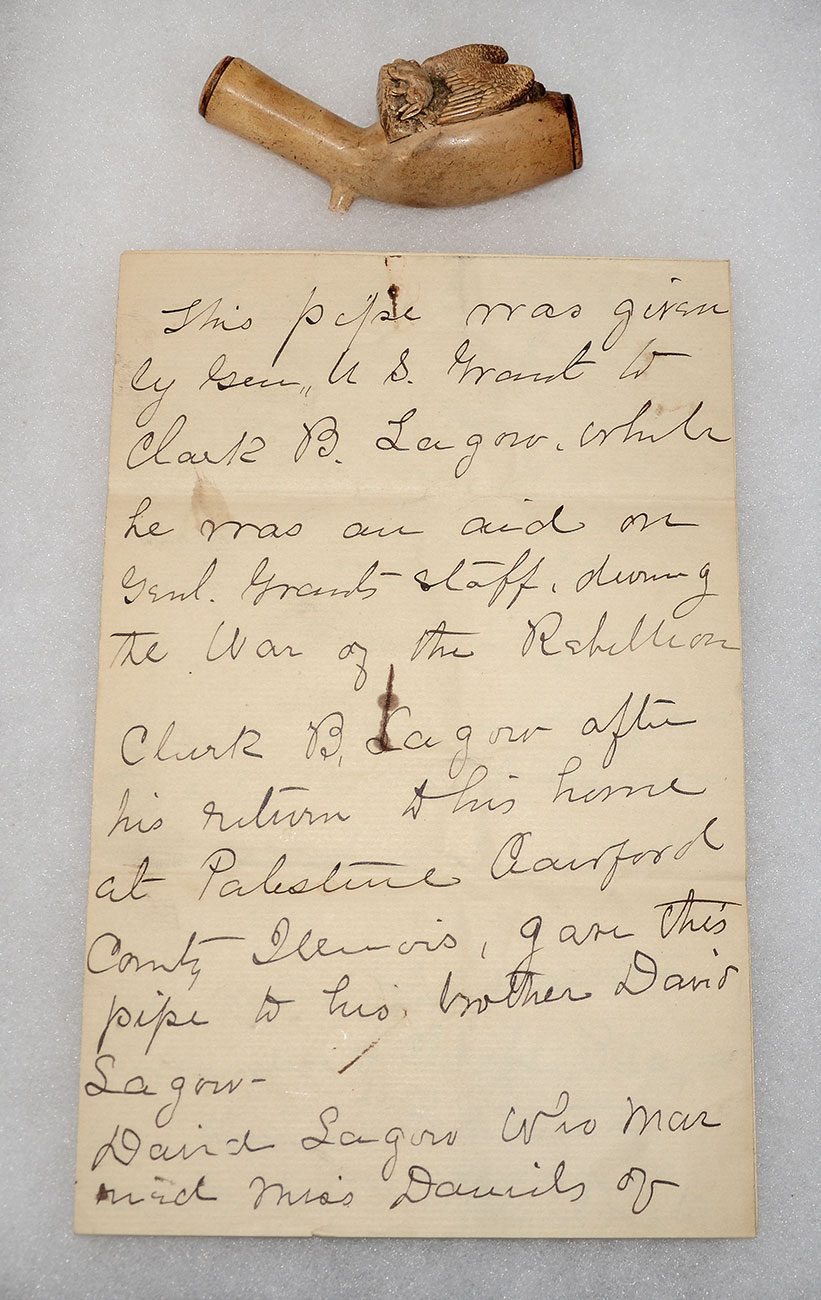 This pipe was given
by Gen,, U S. Grant to
Clark B. Lagow, while
he was an aid on
Genl. Grants staff, during
the War of the Rebellion
Clark B, Lagow after
his return to his home
at Palestine Crawford
County Illinois, gave this
pipe to his brother David
Lagow-
David Lagow Who Mar
ried Miss Daniels of